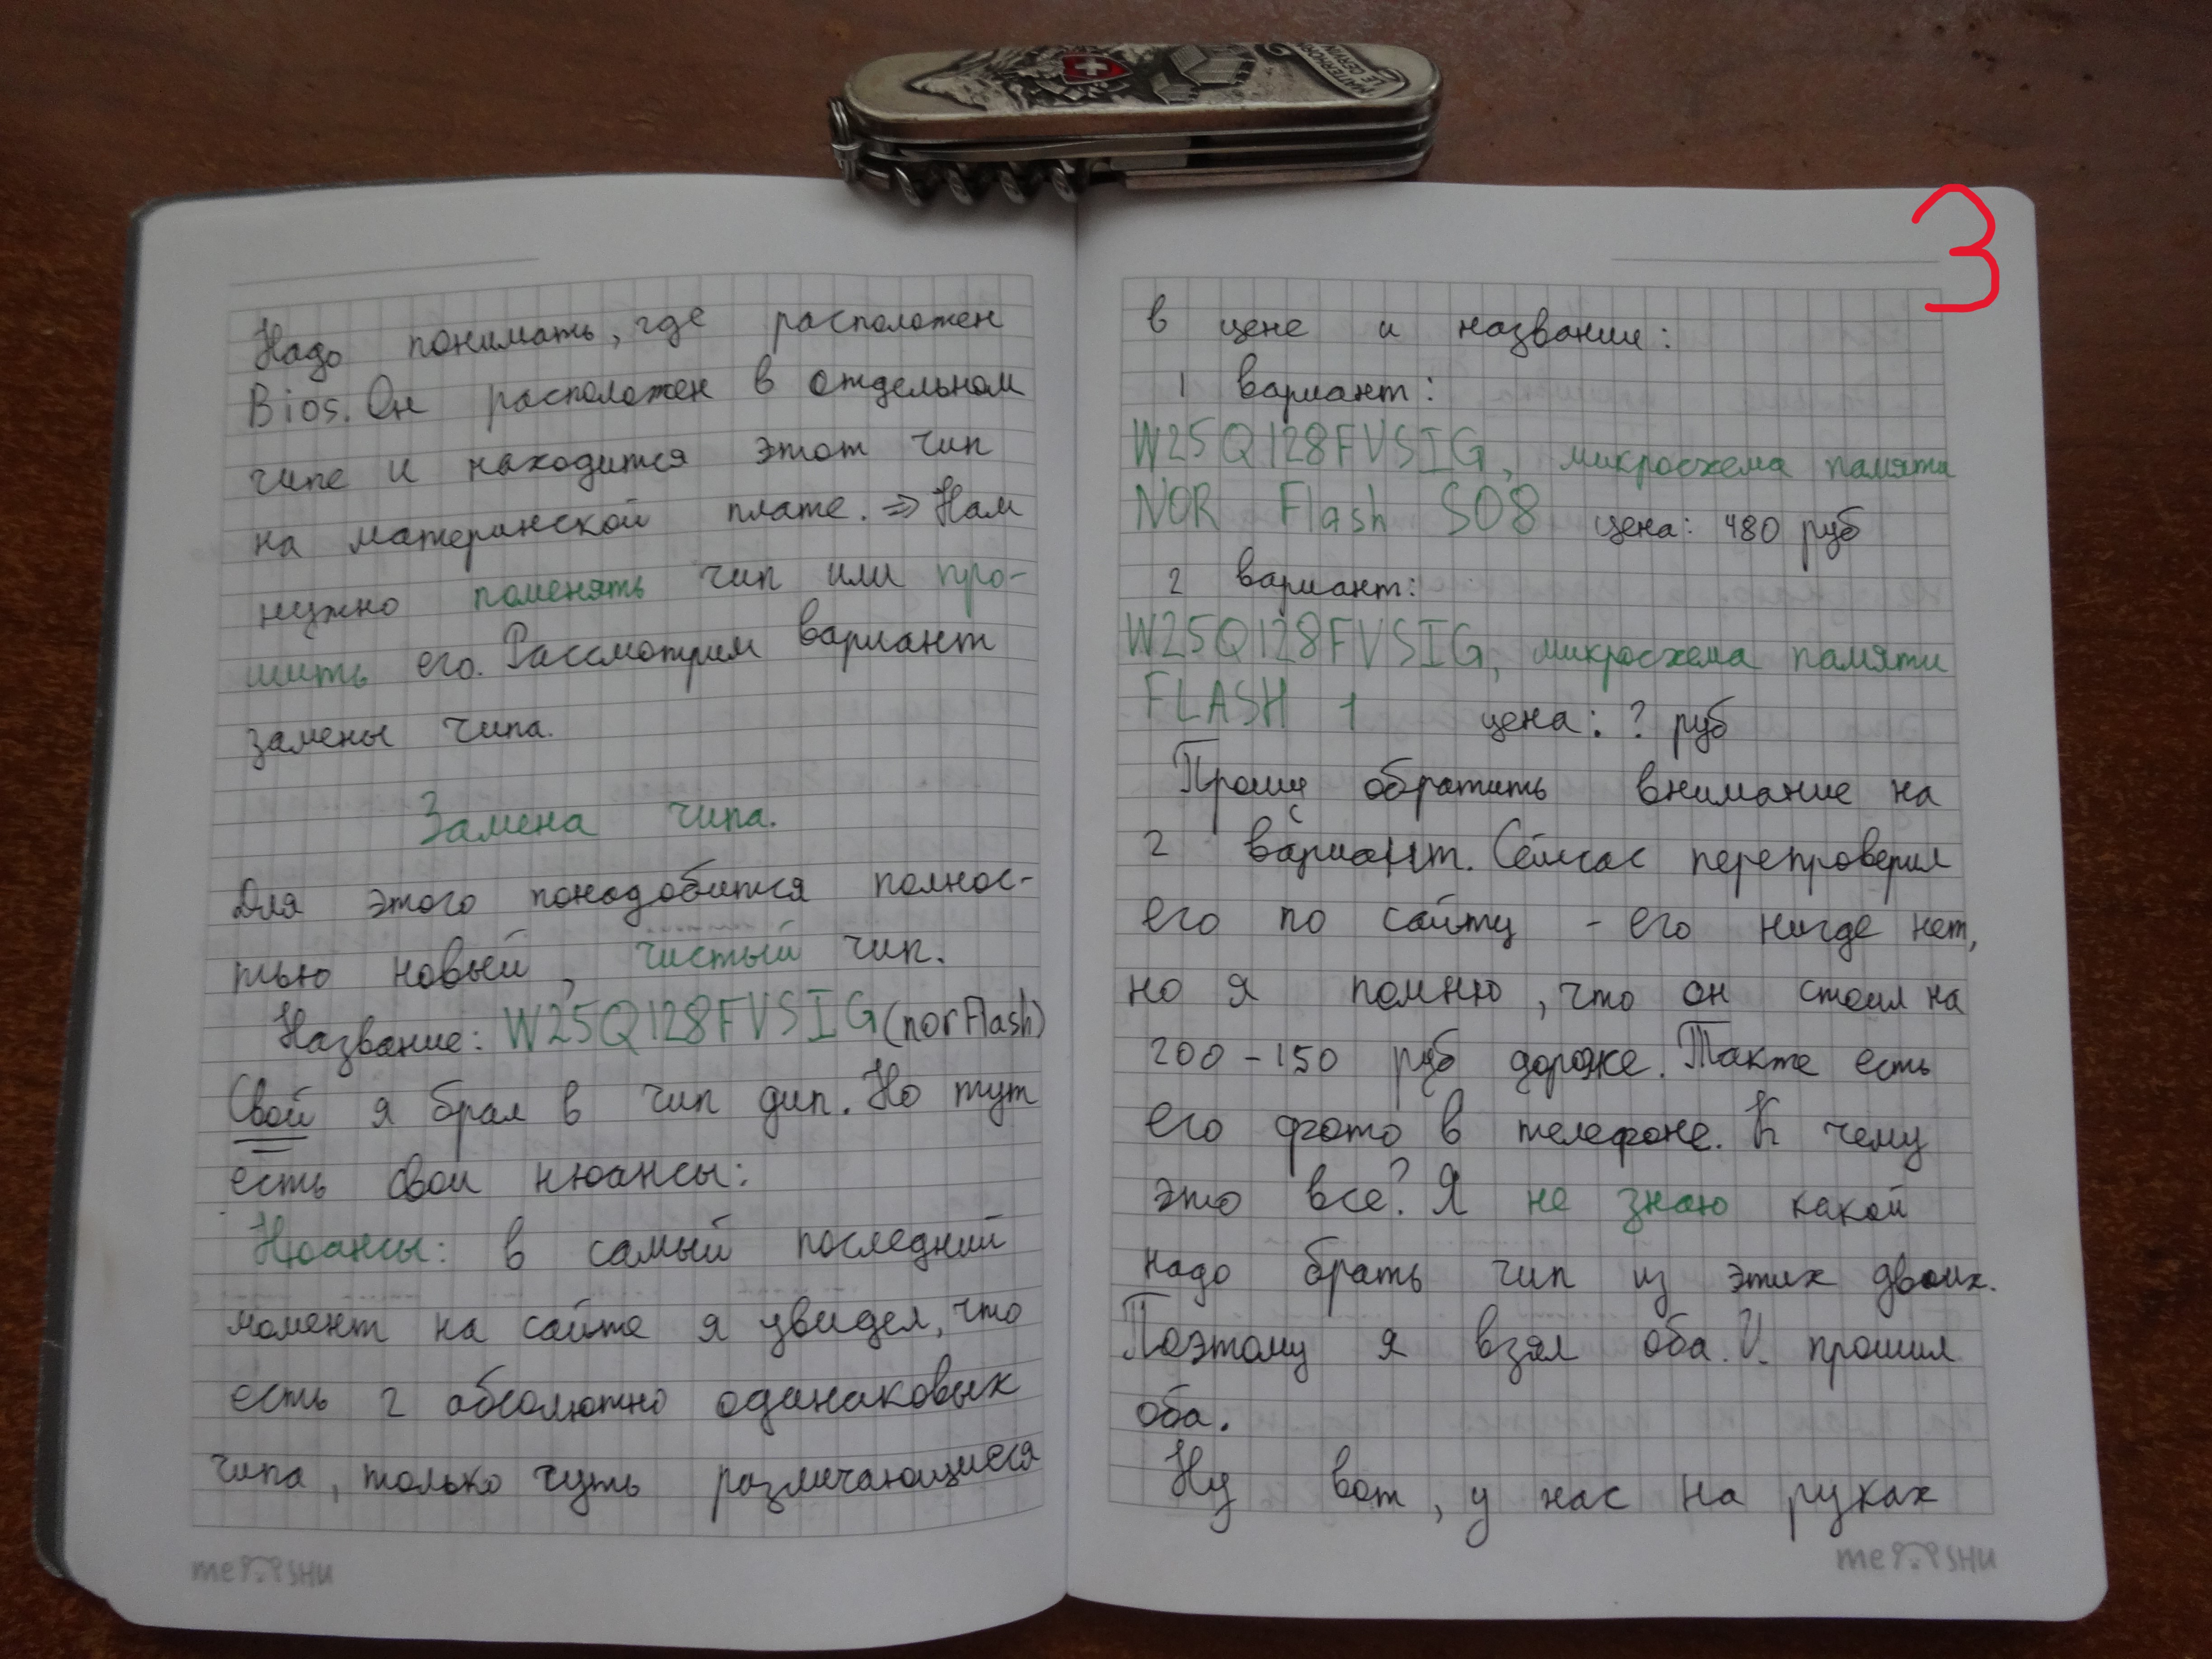 MATTERHORN
LE CERVIN
3
Надо понимать, где расположен
Bios. Он расположен в отдельном
чипе и находится этот чип
на материнской плате. => Нам
нужно поменять чип или про-
шить его. Рассмотрим вариант
замены чипа.
Замена чипа.
Для этого понадобится полнос-
тью новый, чистый чип.
Название: W25Q128FVSIG (norFlash)
Свой я брал в чип дип. Но тут
есть свои нюансы:
Нюансы: в самый последний
момент на сайте я увидел, что
есть 2 абсолютно одинаковых
чипа, только чуть различающиеся
me
SHU
в цене и название:
1 вариант:
W25Q128FVSIG, микросхема памяти
NOR Flash SO8 цена: 480 руб
2 вариант:
W25Q128FVSIG, микросхема памяти
FLASH 1 цена: ? руб
Прошу обратить внимание на
2 вариант. Сейчас перепроверил
его по сайту - его нигде нет,
но я помню, что он стоил на
200-150 руб дороже. Также есть
его фото в телефоне. К чему
это все? Я не знаю какой
надо брать чип из этих двоих.
Поэтому я взял оба. И прошил
оба.
Ну вот, у нас на руках
me
SHU